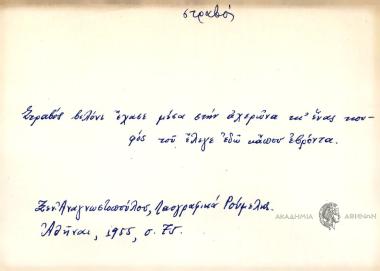 στραβός
Στραβός βελόνι ἔχασε μέσα στήν ἀχερῶνα κι' ἕνας κου-
φός τοῦ ἔλεγε ἐδῶ κάπου ἐβρόντα.
Ξεν. Ἀναγνωστοπούλου, Λαογραφικά Ρούμελης
Ἀθῆναι, 1955, σ. 75.
ΑΚΑΔΗΜΙΑ ΑΘΗΝΩΝ